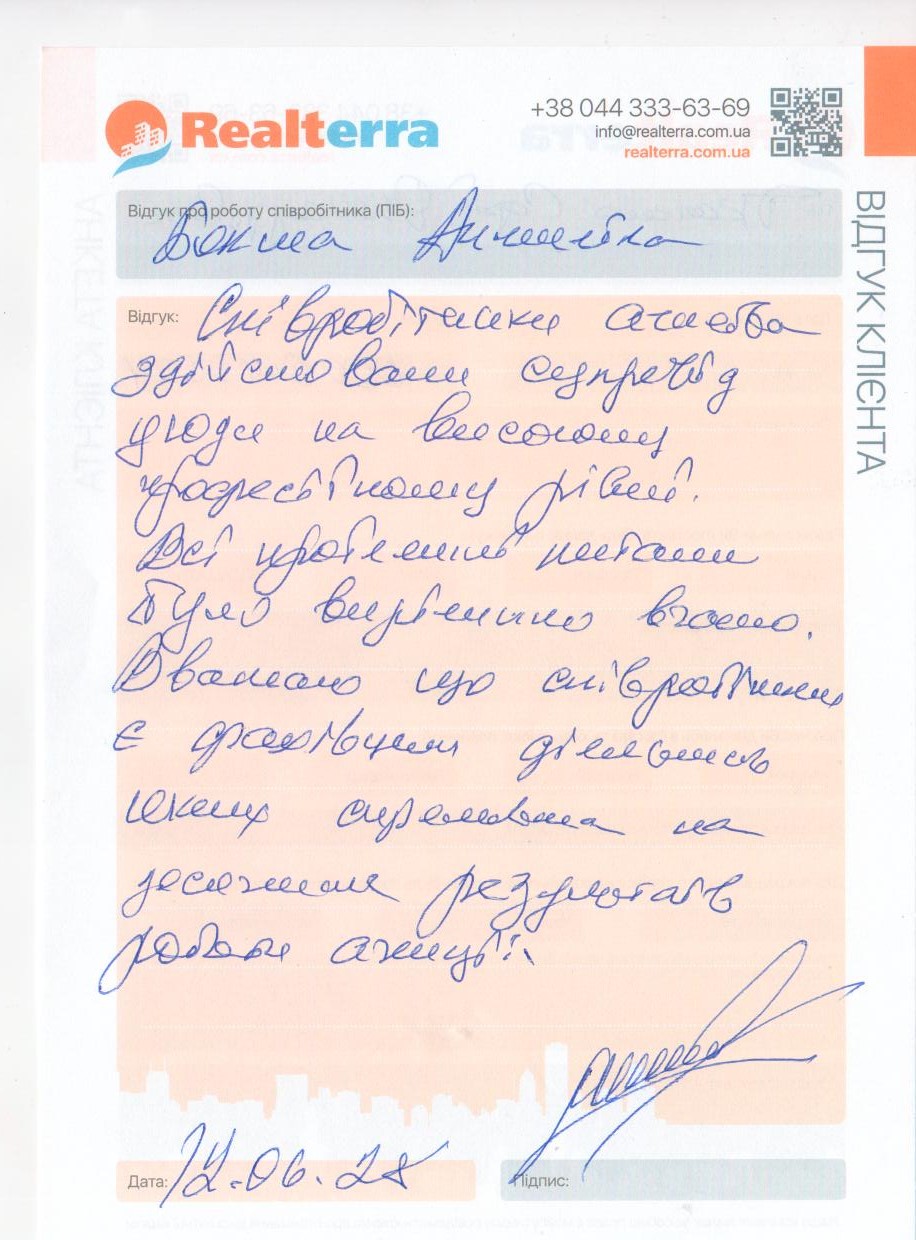 Realterra
+38 044 333-63-69
info@realterra.com.ua
realterra.com.ua
ВІДГУК КЛІЄНТА
Відгук про роботу співробітника (ПІБ):
Відгук: Співробітники агенства
здійснювали супровід
угоди на високому
професійному рівні.
Всі проблемні питання
було вирішено вчасно.
Вважаю що співробітники
є фахівцями діяльність
яких спрямована на
досягнення результатів
роботи агенції!
Дата: 12.06.18
Підпис: